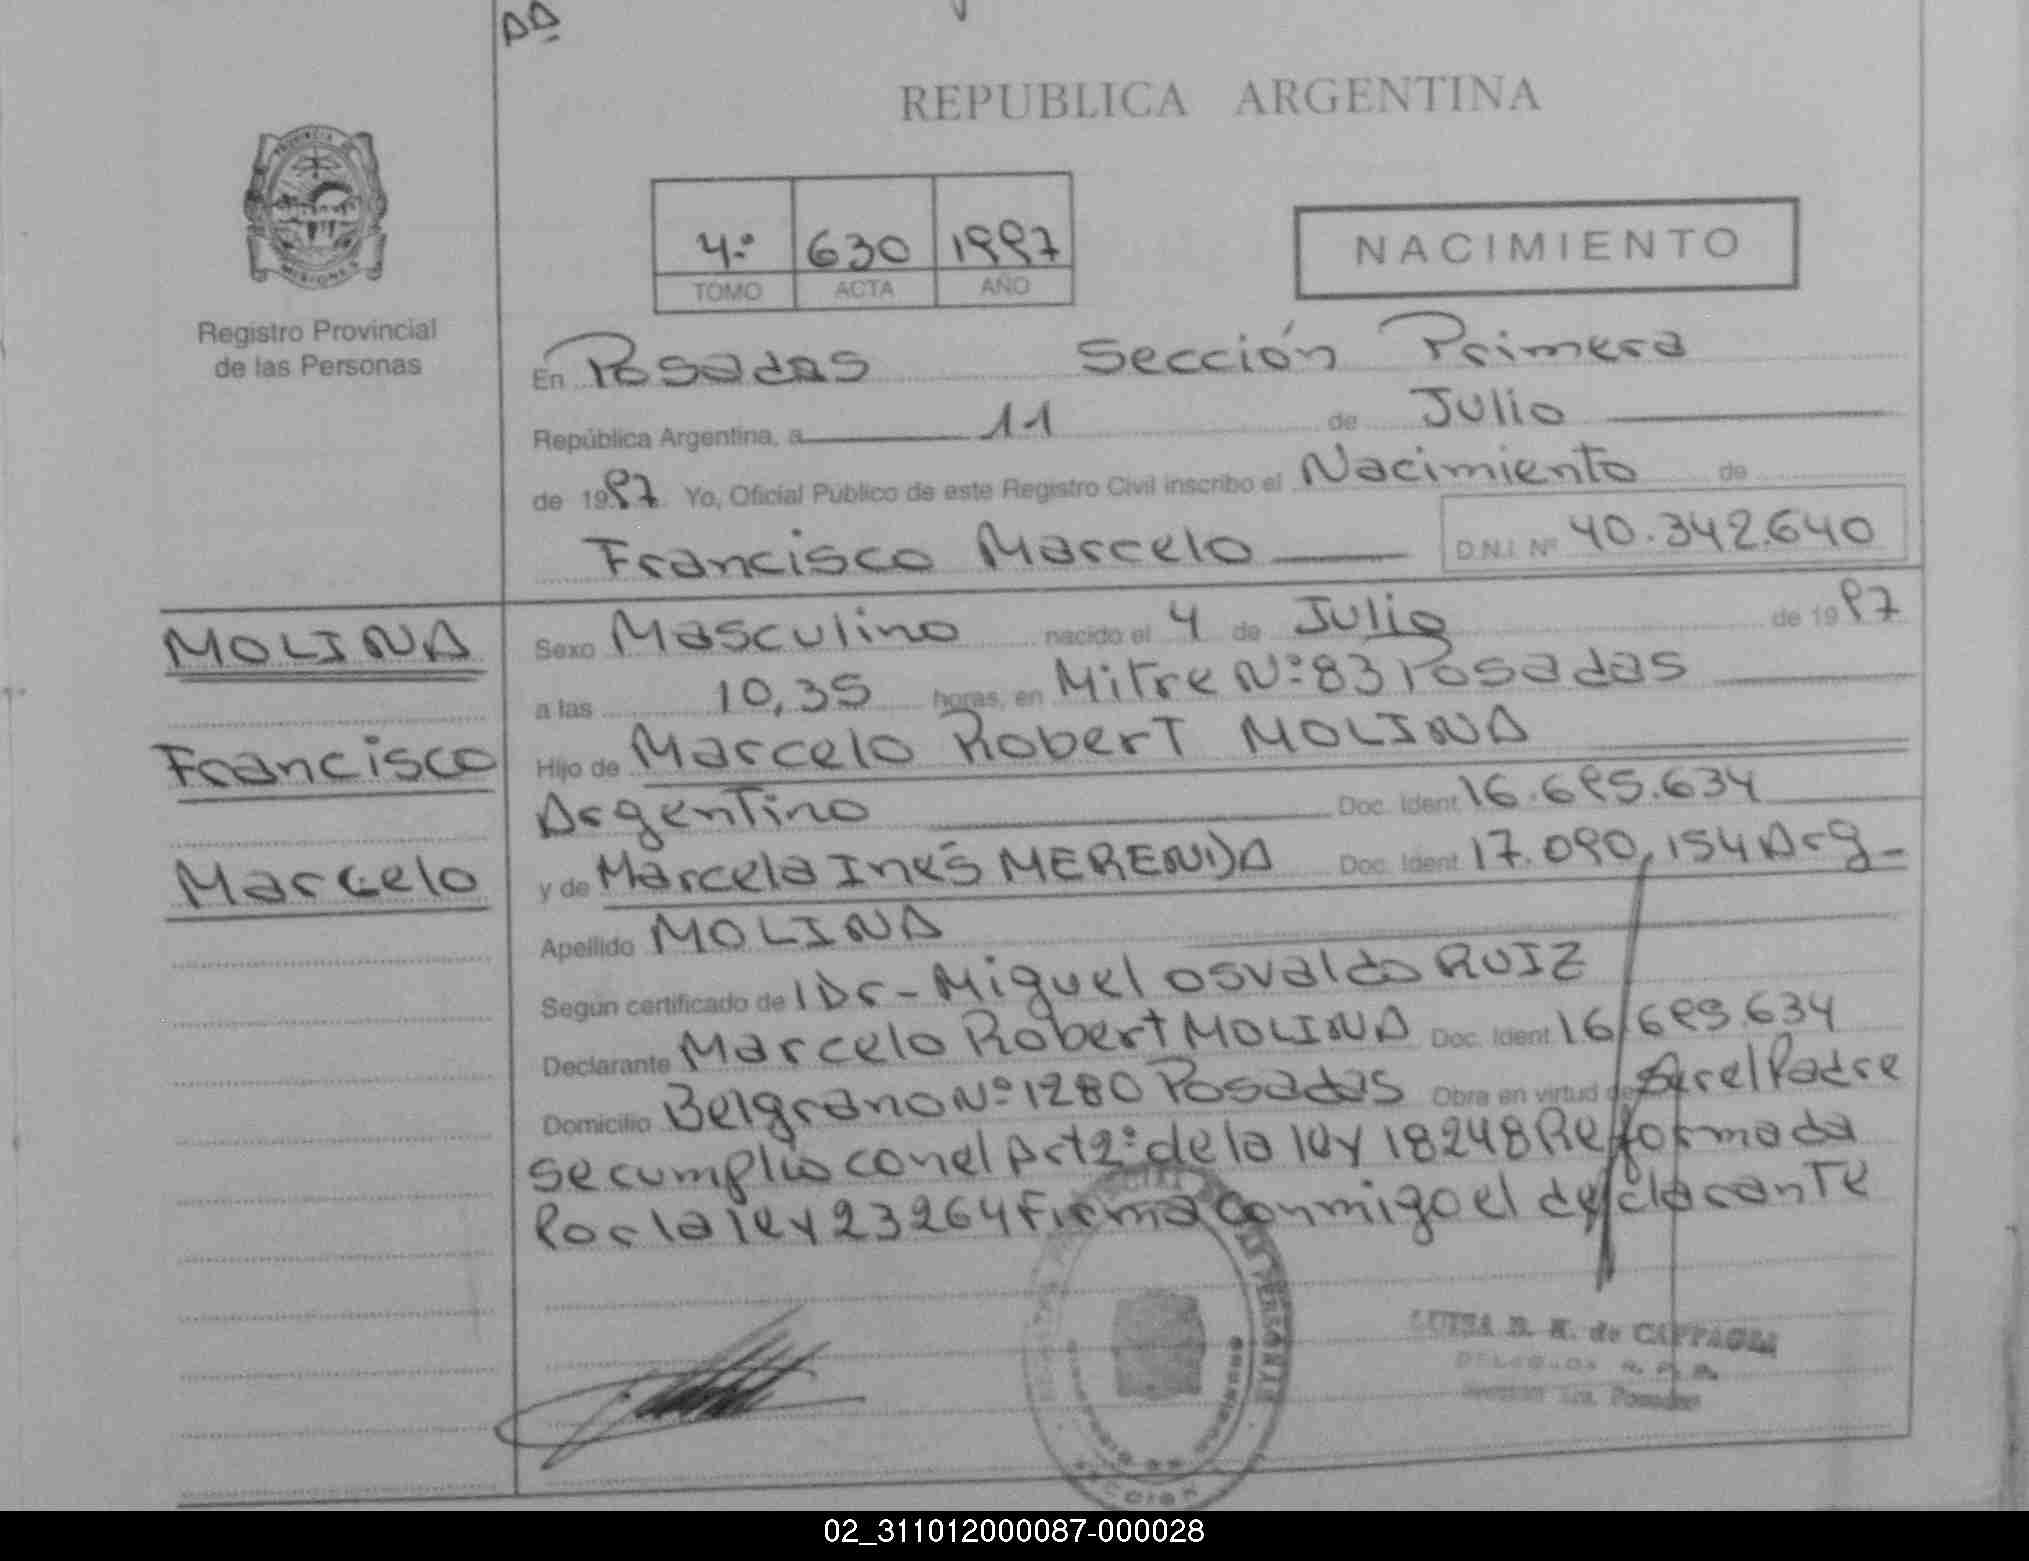 REPUBLICA ARGENTINA
PROVINCIA
MISIONES
Registro Provincial
de las Personas
4.º 630 1997
TOMO ACTA AÑO
NACIMIENTO
En Posadas Sección Primera
República Argentina, a 11 de Julio
de 1997. Yo, Oficial Público de este Registro Civil inscribo el Nacimiento de
Francisco Marcelo D.N.I. Nº 40.342.640
MOLINA
Francisco
Marcelo
Sexo Masculino nacido el 4 de Julio de 1997
a las 10,35 horas, en Mitre Nº 83 Posadas
Hijo de Marcelo Robert MOLINA
Argentino Doc. Ident. 16.695.634
y de Marcela Inés MERENDA Doc. Ident. 17.090,154 Arg-
Apellido MOLINA
Según certificado de Dr- Miguel Osvaldo RUIZ
Declarante Marcelo Robert MOLINA Doc. Ident. 16.695.634
Domicilio Belgrano Nº 1280 Posadas Obra en virtud de Ser el Padre
se cumplio con el Art 2º de la ley 18248 Reformada
Por la ley 23264 Firma Conmigo el declarante
PERSONAS
LUISA de CAPPAGLI
Posadas
02_311012000087-000028